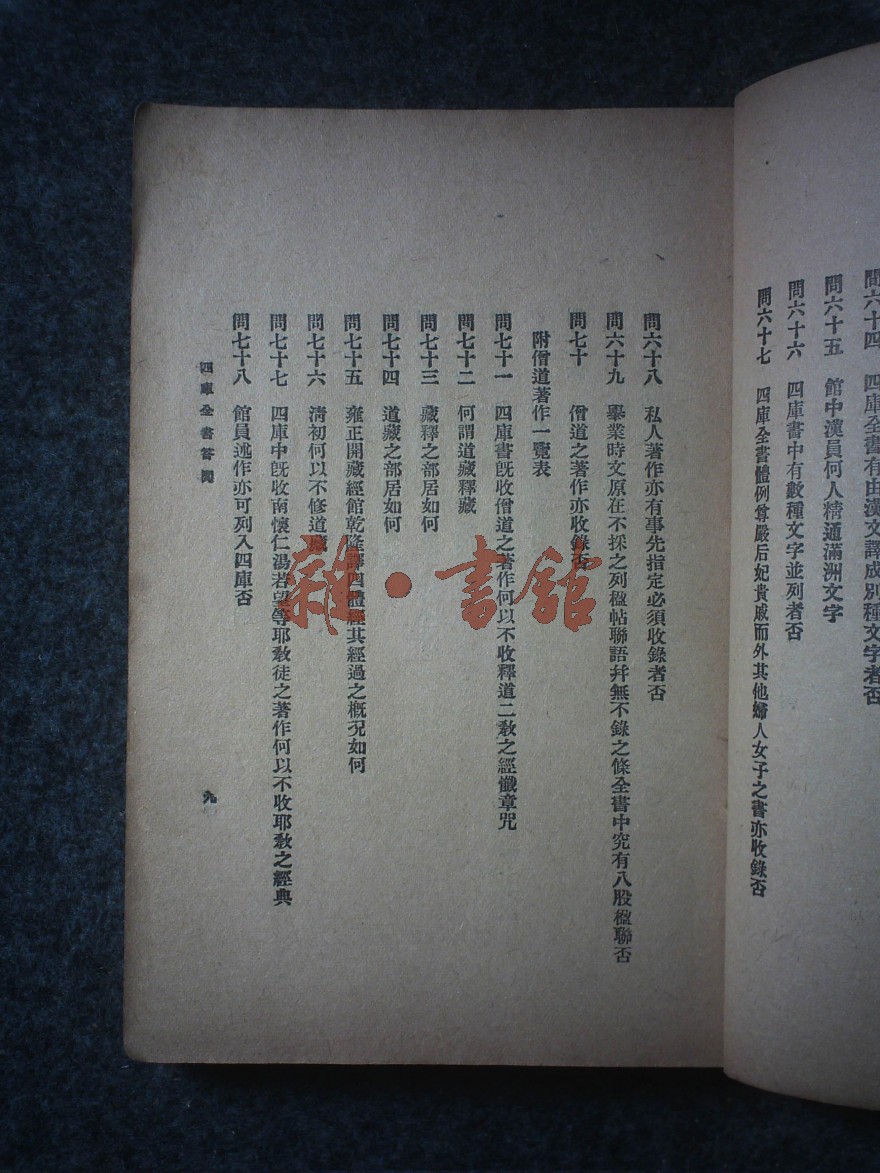 問六十四　四庫全書有由漢文譯成別種文字者否
問六十五　館中漢員何人精通滿洲文字
問六十六　四庫書中有數種文字並列者否
問六十七　四庫全書體例尊嚴后妃貴戚而外其他婦人女子之書亦收錄否
問六十八　私人著作亦有事先指定必須收錄者否
問六十九　畢業時文原在不採之列楹帖聯語幷無不錄之條全書中究有八股楹聯否
問七十　僧道之著作亦收錄否
附僧道著作一覽表
問七十一　四庫書旣收僧道之著作何以不收釋道二敎之經懺章咒
問七十二　何謂道藏釋藏
問七十三　藏釋之部居如何
問七十四　道藏之部居如何
問七十五　雍正開藏經館乾隆譯四體經其經過之槪況如何
問七十六　淸初何以不修道藏
問七十七　四庫中旣收南懷仁湯若望等耶敎徒之著作何以不收耶敎之經典
問七十八　館員述作亦可列入四庫否
四庫全書答問
九
雜·書館